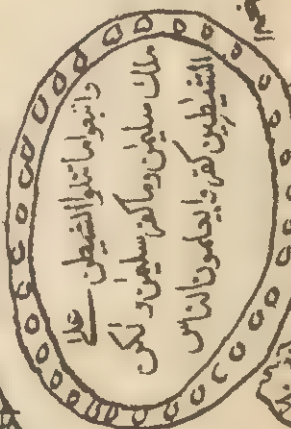 واتبعوا ما تتلوا الشيطين على
ملك سليمن وما كفر سليمن ولكن
الشيطين كفروا يعلمون الناس